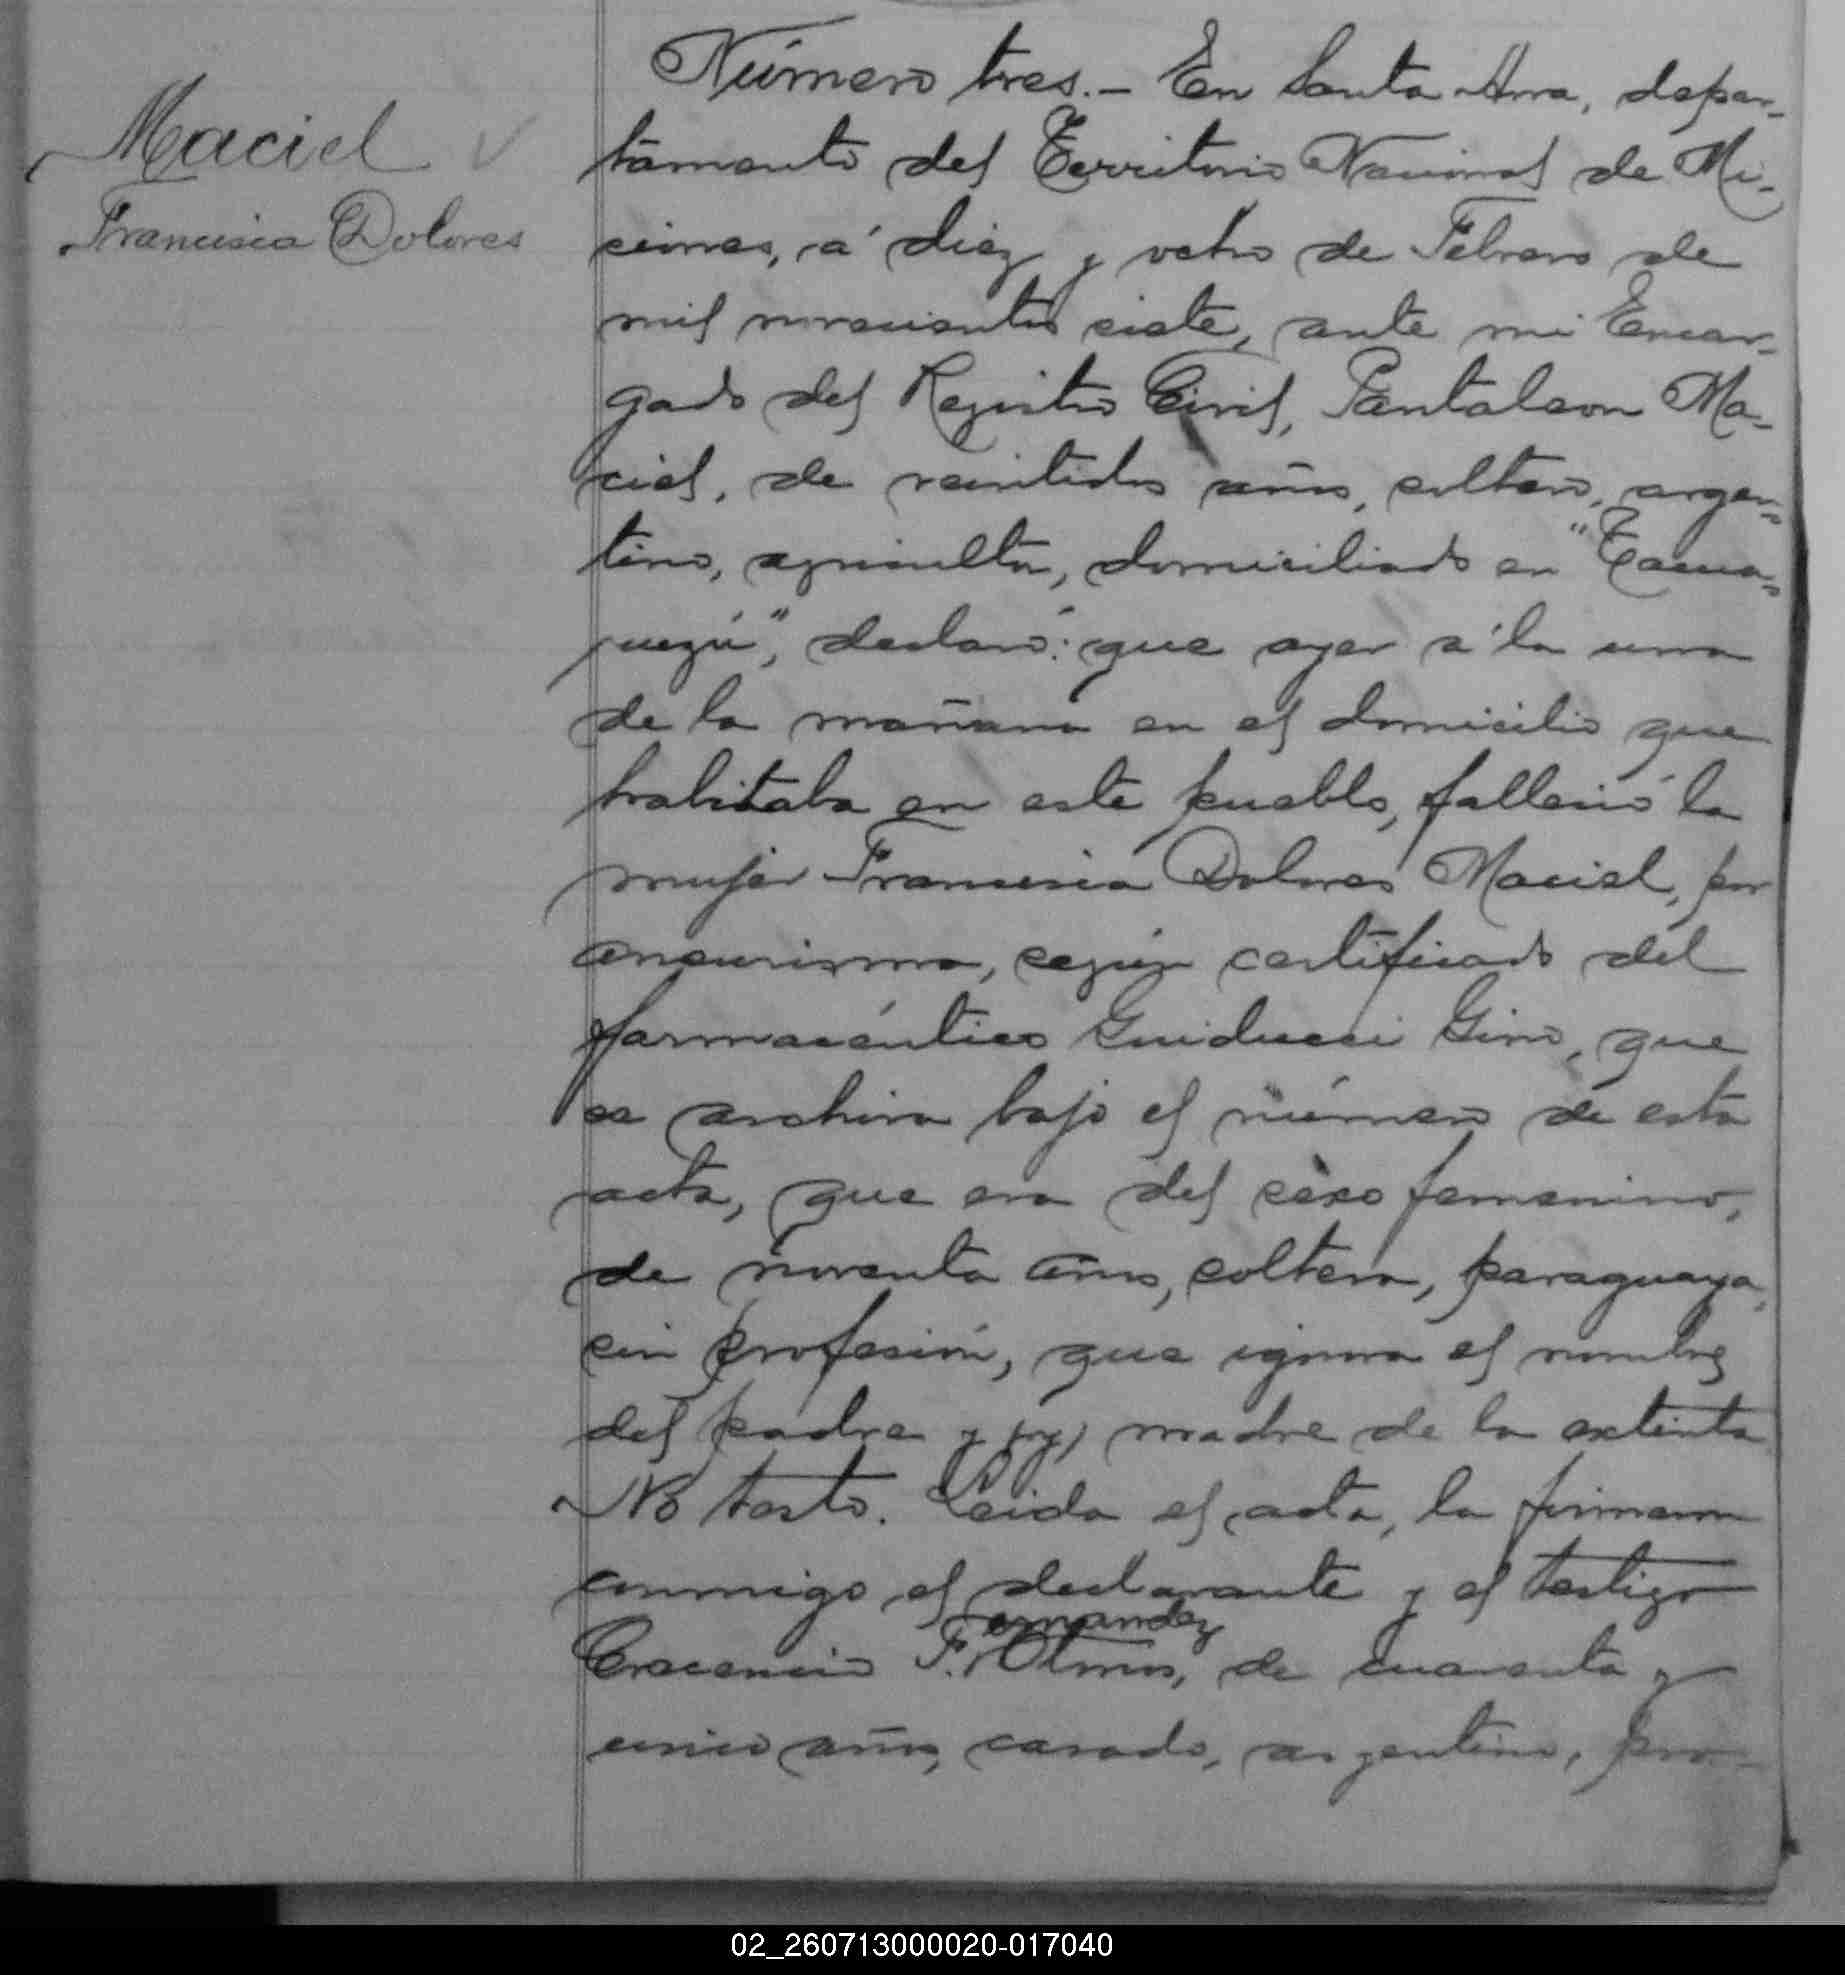 Maciel
Francisca Dolores
Número tres.- En Santa Ana, depar-
tamento del Territorio Nacional de Mi-
siones, á diez y ocho de Febrero de
mil novecientos siete, ante mi Encar-
gado del Registro Civil, Pantaleon Ma-
ciel, de veintidos años, soltero, argen-
tino, agricultor, domiciliado en "Tacua-
ruzú", declaró: que ayer á la una
de la mañana en el domicilio que
habitaba en este pueblo, falleció la
mujer Francisca Dolores Maciel, por
aneurisma, según certificado del
farmacéutico Guiducci Gino, que
se archiva bajo el número de esta
acta, que era del sexo femenino,
de noventa años, soltera, paraguaya,
sin profesión, que ignora el nombre
del padre y madre de la extinta
No testó. Leida el acta, la firmaron
conmigo el declarante y el testigo
ernandez
Crecencio F. Olmos, de cuarenta y
cinco años, casado, argentino, pro-
02_260713000020-017040